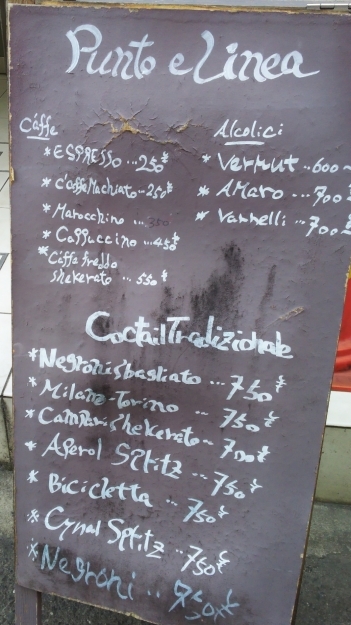 Punto e Linea
Cáffe
* ESPRESSO ... 250¥
* CáffeMachiato - 250¥
* Marocchino ... 350
* Cappuccino ... 450¥
* Cáffe freddo
shekerato ... 550¥
Alcolici
* Vermut .. 600~
* AMaro ... 700¥
* Varnelli ... 700¥
CoctailTradizionale
* Negronisbagliato ... 750¥
* Milano-Torino ... 750¥
* Camparishekerato ~ 700¥
* Aperol SPtitz ... 750¥
* Bicicletta ... 750¥
* Cynal Sptitz ... 750¥
* Negroni ... 950¥